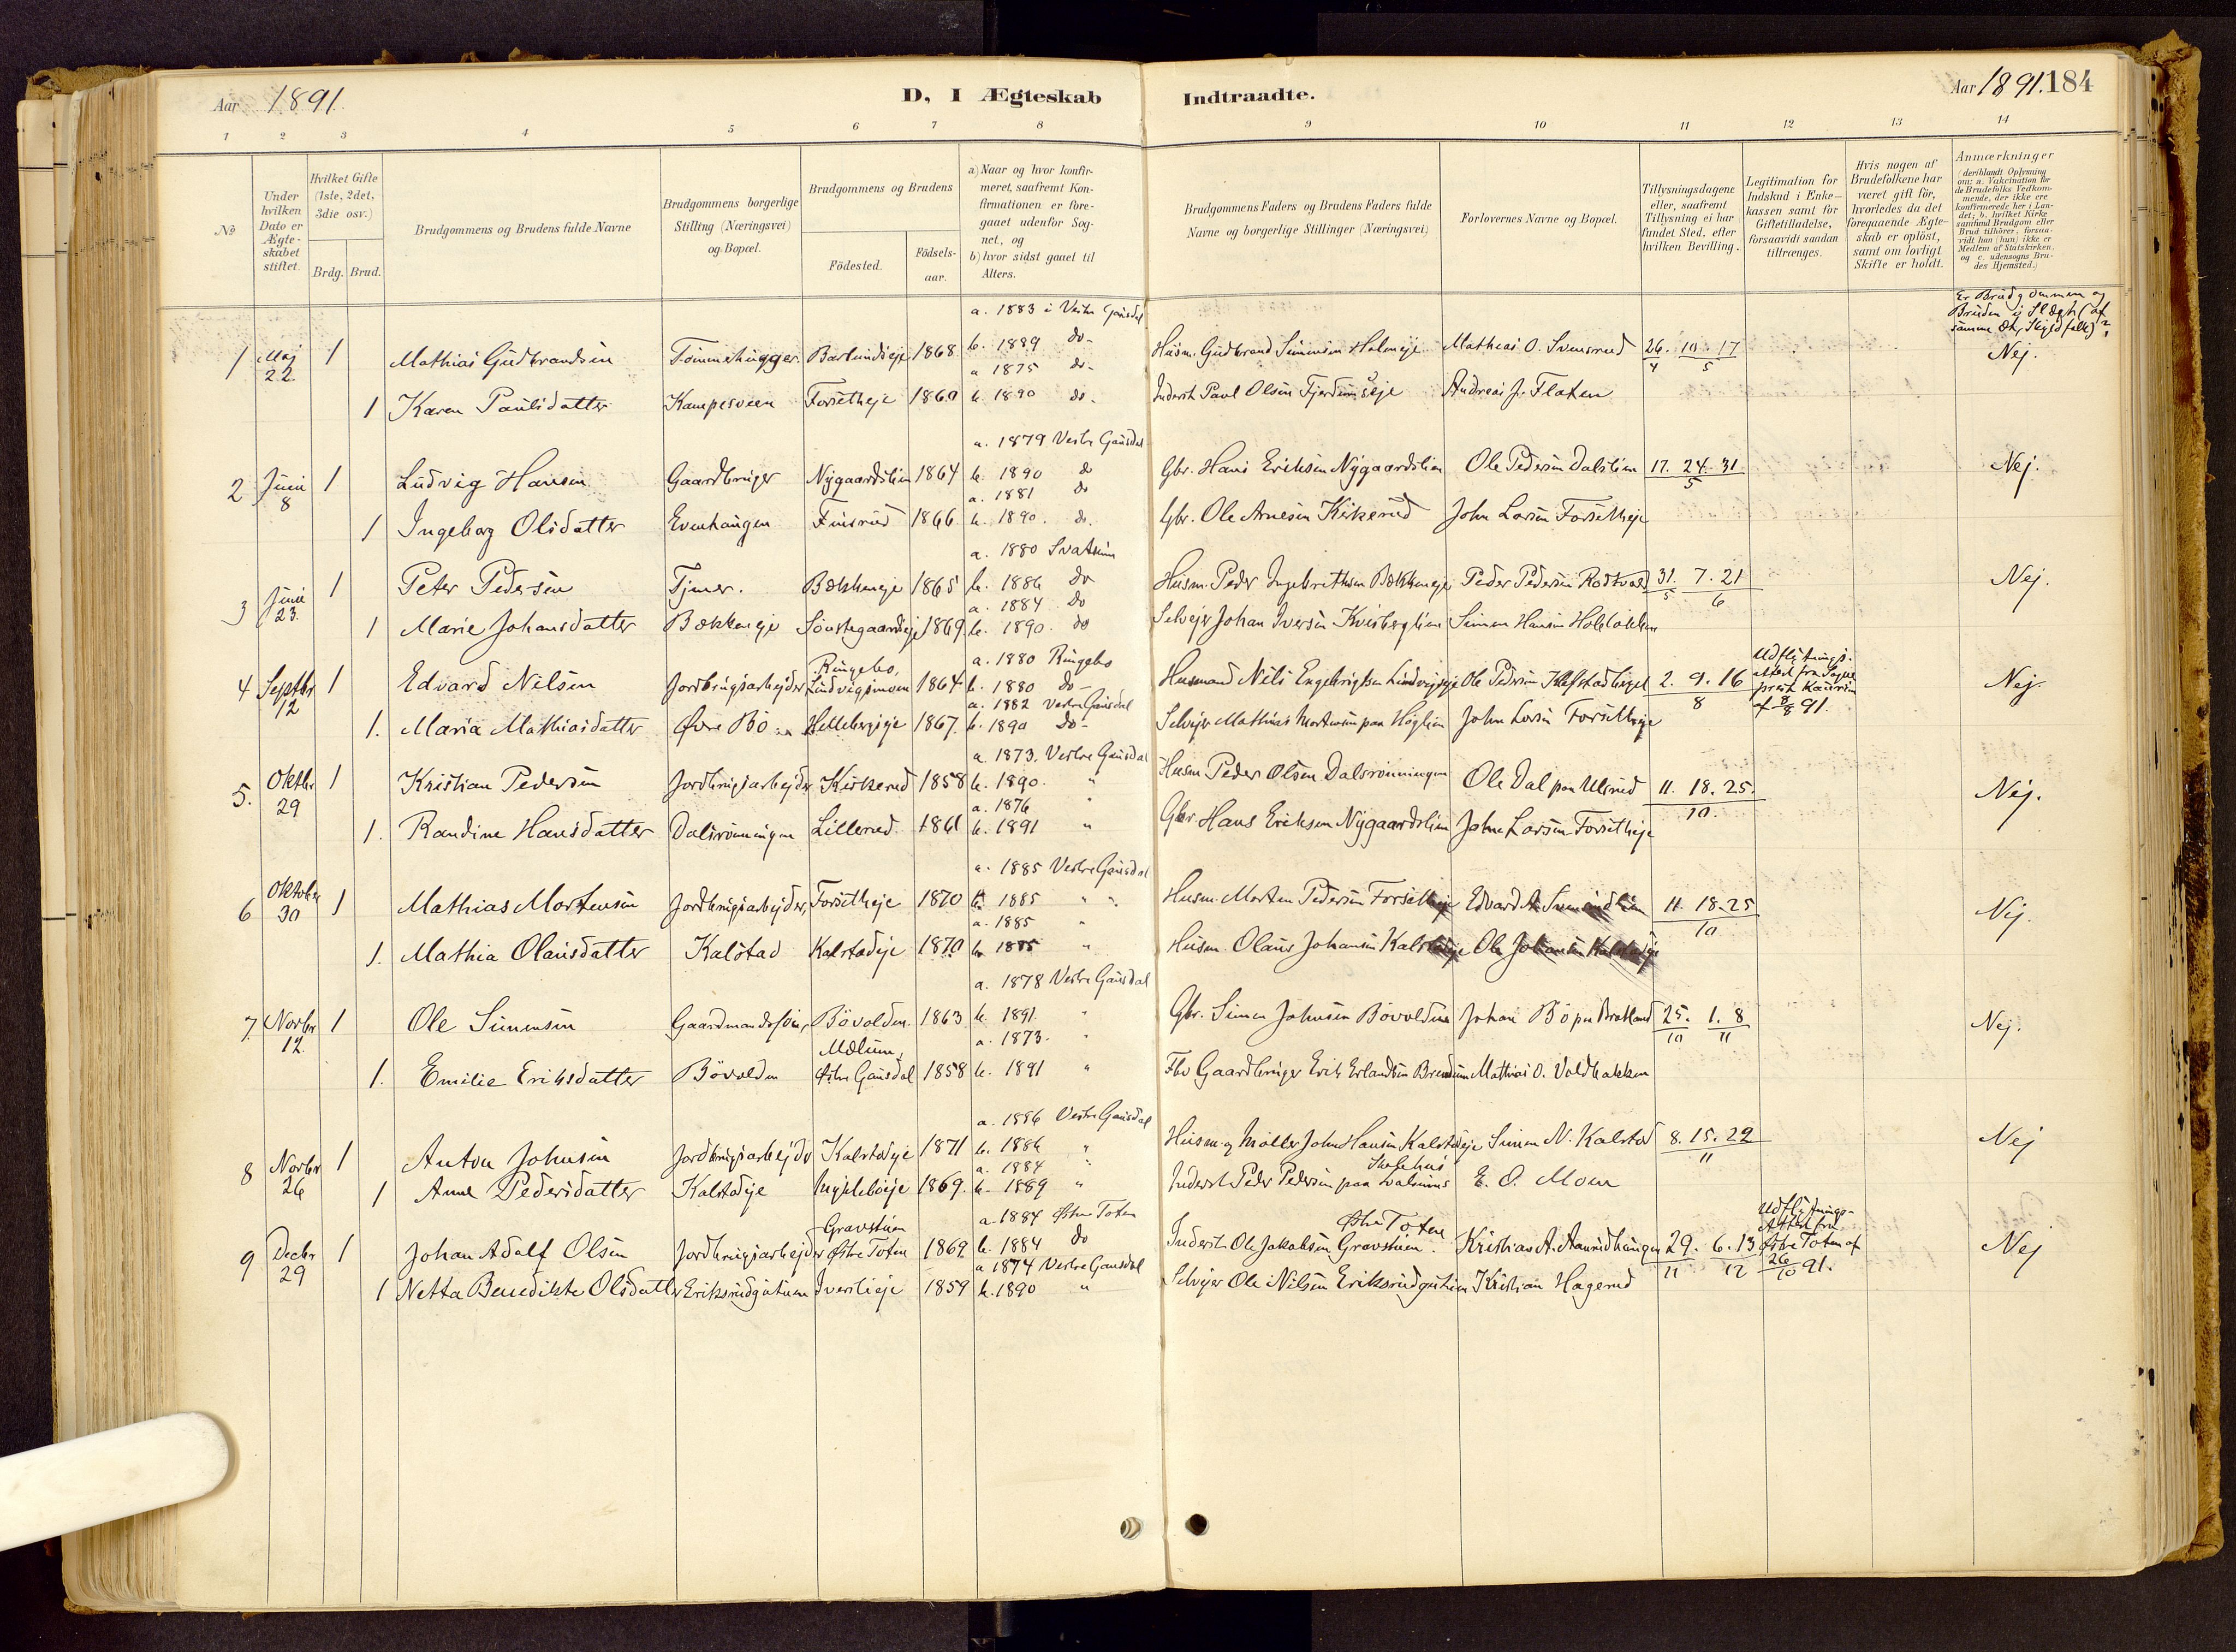 Aar 1891.
D, I Ægteskab
Indtraadte.
Aar 1891. 184
1 2 3 4 5 6 7 8 9 10 11 12 13 14
No
Under hvilken Dato er Ægteskabet stiftet.
Hvilket Gifte (1ste, 2det, 3die osv.)
Brdg. Brud.
Brudgommens og Brudens fulde Navne
Brudgommens borgerlige Stilling (Næringsvei) og Bopæl.
Brudgommens og Brudens
Födested.
Födsels-aar.
a) Naar og hvor konfirmeret, saafremt Konfirmationen er foregaaet udenfor Sognet, og
b) hvor sidst gaaet til Alters.
Brudgommens Faders og Brudens Faders fulde Navne og borgerlige Stillinger (Næringsvei)
Forlovernes Navne og Bopæl.
Tillysningsdagene eller, saafremt Tillysning ei har fundet Sted, efter hvilken Bevilling.
Legitimation for Indskud i Enkekassen samt for Giftetilladelse, forsaavidt saadan tiltrænges.
Hvis nogen af Brudefolkene har været gift før, hvorledes da det foregaaende Ægteskab er oplöst, samt om lovligt Skifte er holdt.
Anmærkninger (deriblandt Oplysning om: a. Vakcination for de Brudefolks Vedkommende, der ikke ere konfirmerede her i Landet; b. hvilket Kirkesamfund Brudgom eller Brud tilhører, forsaavidt han (hun) ikke er Medlem af Statskirken, og c. udensogns Brudes Hjemsted.)
Er Brudgommen og Bruden i Slægt (af samme Æt, Skyldfolk)?
a. 1883 i Vestre Gausdal
1 Maj 22. 1 Mathias Gudbrandsen Tømmehugger Baslundseje 1868 b. 1889 do- Husm. Gudbrand Simensen Holmeje Mathias O. Svensrud 26. 10. 17 Nej.
4 5
a 1875 do-
1 Karen Paulsdatter Kampesveen Forsetheje 1860 b. 1890 do. Inderst Paul Olsen Fjerdumseje Andreas J. Flaten
a. 1879 Vestre Gausdal
2 Juni 8 1 Ludvig Hansen Gaardbruger Nygaardslien 1864 b. 1890 do Gbr. Hans Eriksen Nygaardslien Ole Pedersen Dalslien 17. 24. 31. Nej.
5
a. 1881 do
1 Ingeborg Olsdatter Evenhaugen Finsrud 1866 b. 1890. do. Gbr. Ole Arnesen Kirkerud John Larsen Forsetheje
a. 1880 Svatsum
3 Juni 23. 1 Peter Pedersen Tjener. Bækkeneje 1865 b. 1886 do Husm. Peder Ingebrethsen Bækkeneje Peder Pedersen Rodtvold 31. 7. 21 Nej.
5 6
a. 1884 do
1 Marie Johansdatter Bækkeneje Sönstegaardseje 1869. b. 1890. do Selvejer Johan Iversen Kvisberglien Simen Hansen Holelökken
Ringebo, a. 1880 Ringebo
Udflytnings-attest fra Sogneprest Kaurin af 8/8 91.
4 Septbr 12 1 Edvard Nilsen Jordbrugsarbejder Lindvigsmoen 1864 b. 1880 do- Husmand Nils Engebrigtsen Lindvigseje Ole Pedersen Klefstadhaget 2. 9. 16 Nej.
8
a. 1882 Vestre Gausdal
1. Maria Mathiasdatter Øvre Bö Helleberseje 1867. b. 1890 do- Selvejer Mathias Mortensen paa Höglien John Larsen Forsetheje
a. 1873. Vestre Gausdal
5. Oktbr 29 1 Kristian Pedersen Jordbrugsarbejder Kirkerud 1858 b. 1890. " Husm Peder Olsen Dalsrönningen Ole Dal paa Ulsrud 11. 18. 25. Nej.
10.
a. 1876 "
1. Randine Hansdatter Dalsrönningen Lillerud 1861 b. 1891 " Gbr Hans Eriksen Nygaardslien John Larsen Forsetheje
a. 1885 Vestre Gausdal
6 Oktober 30 1 Mathias Mortensen Jordbrugsarbejder, Forsetheje 1870 b. 1885 " Husm. Morten Pedersen Forsetheje Edvard A. 11. 18. 25 Nej.
10
a. 1885 "
1. Mathia Olausdatter Kalstad Kalstadeje 1870 b. 1885 " Husm. Olaus Johansen Kalstadeje Ole Johansen Kalstadeje
a. 1878 Vestre Gausdal
7. Novbr 12. 1 Ole Simensen Gaardmandssön, Bövolden. 1863 b. 1891. " Gbr. Simen Johnsen Bövolden Johan Bö paa Bratland 25. 1. 8 Nej.
10 11
Mælum, a. 1873. "
1. Emilie Eriksdatter Bövolden Østre Gausdal 1858 b. 1891 " Fhv Gaardbruger Erik Erlandsen Bræudum Mathias O. Voldbakken
a. 1886 Vestre Gausdal
8 Novbr 26 1 Anton Johnsen Jordbrugsarbejder Kalstadeje 1871 b. 1886 " Husm. og Møller John Hansen Kalstadeje Simen N. Kalstad 8. 15. 22 Nej
11
a. 1884 "
1 Anne Pedersdatter Kalstadeje 1869. b. 1889 " Inderst Peder Pedersen paa E. O. Moen
Gravstuen a. 1884 Østre Toten Østre Toten
Udflytnings-Attest fra Østre Toten af 26/10 91.
9 Decbr 29 1 Johan Adolf Olsen Jordbrugsarbejder Østre Toten 1862 b. 1884 do Inderst Ole Jakobsen Gravstuen. Kristian A. Aamodthaugen 29. 6. 13 Nej
11 12
a 1874 Vestre Gausdal
1 Netta Benedikte Olsdatter Eriksrudgutuen Iverslieje 1859 b. 1890 " Selvejer Ole Nilsen Eriksrudgutuen Kristian Hagerud